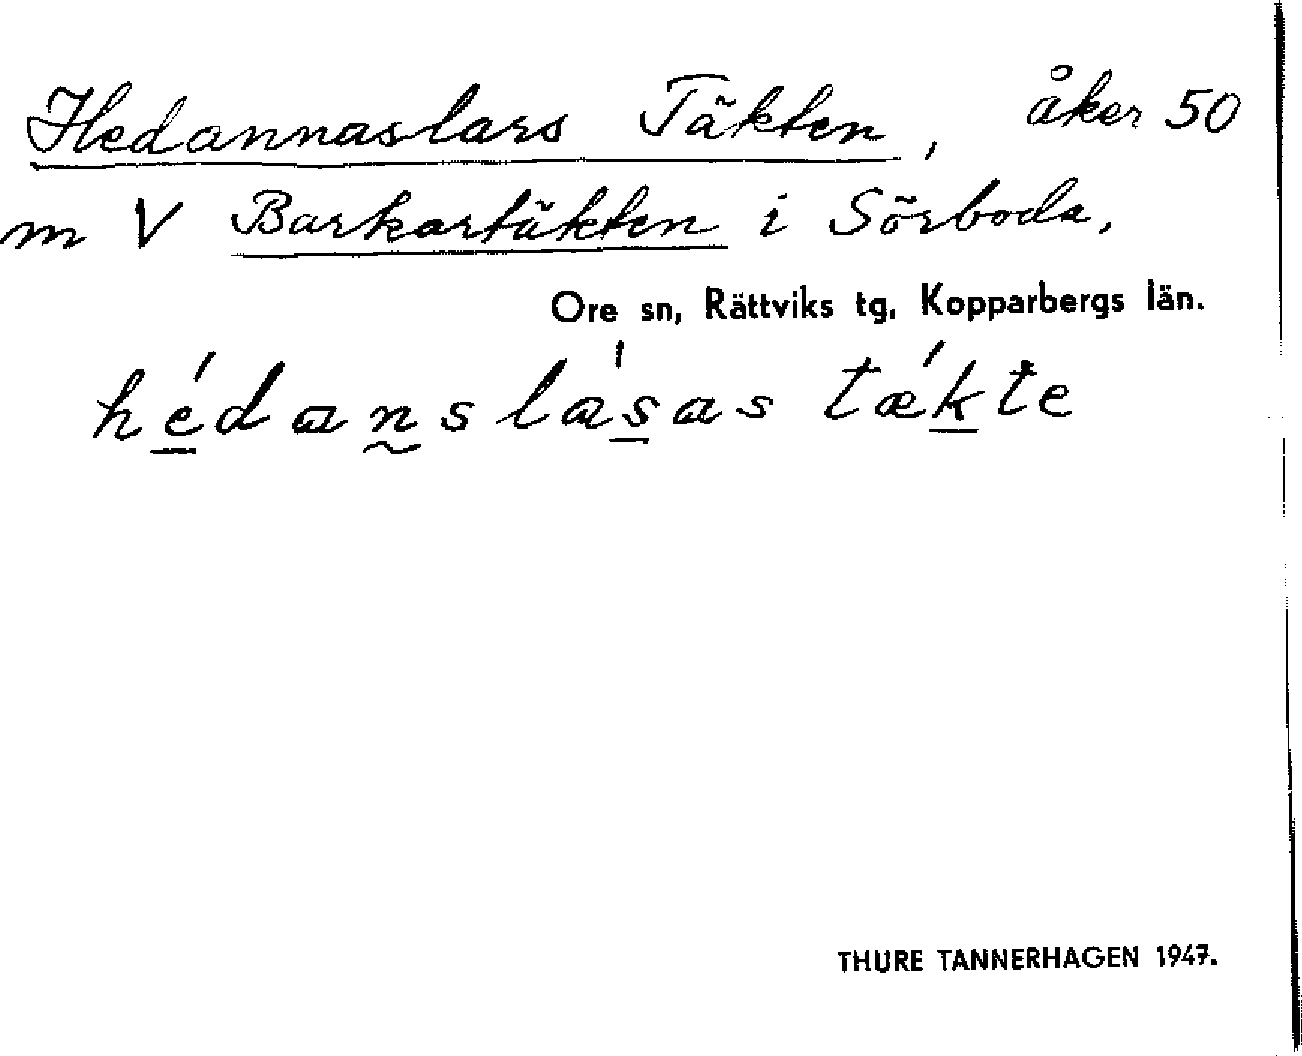 Hedannaslars Täkten, åker 50
m V Barkartäkten i Sörboda,
Ore sn, Rättviks tg, Kopparbergs län.
hédans lásas tǽkte
THURE TANNERHAGEN 1947.